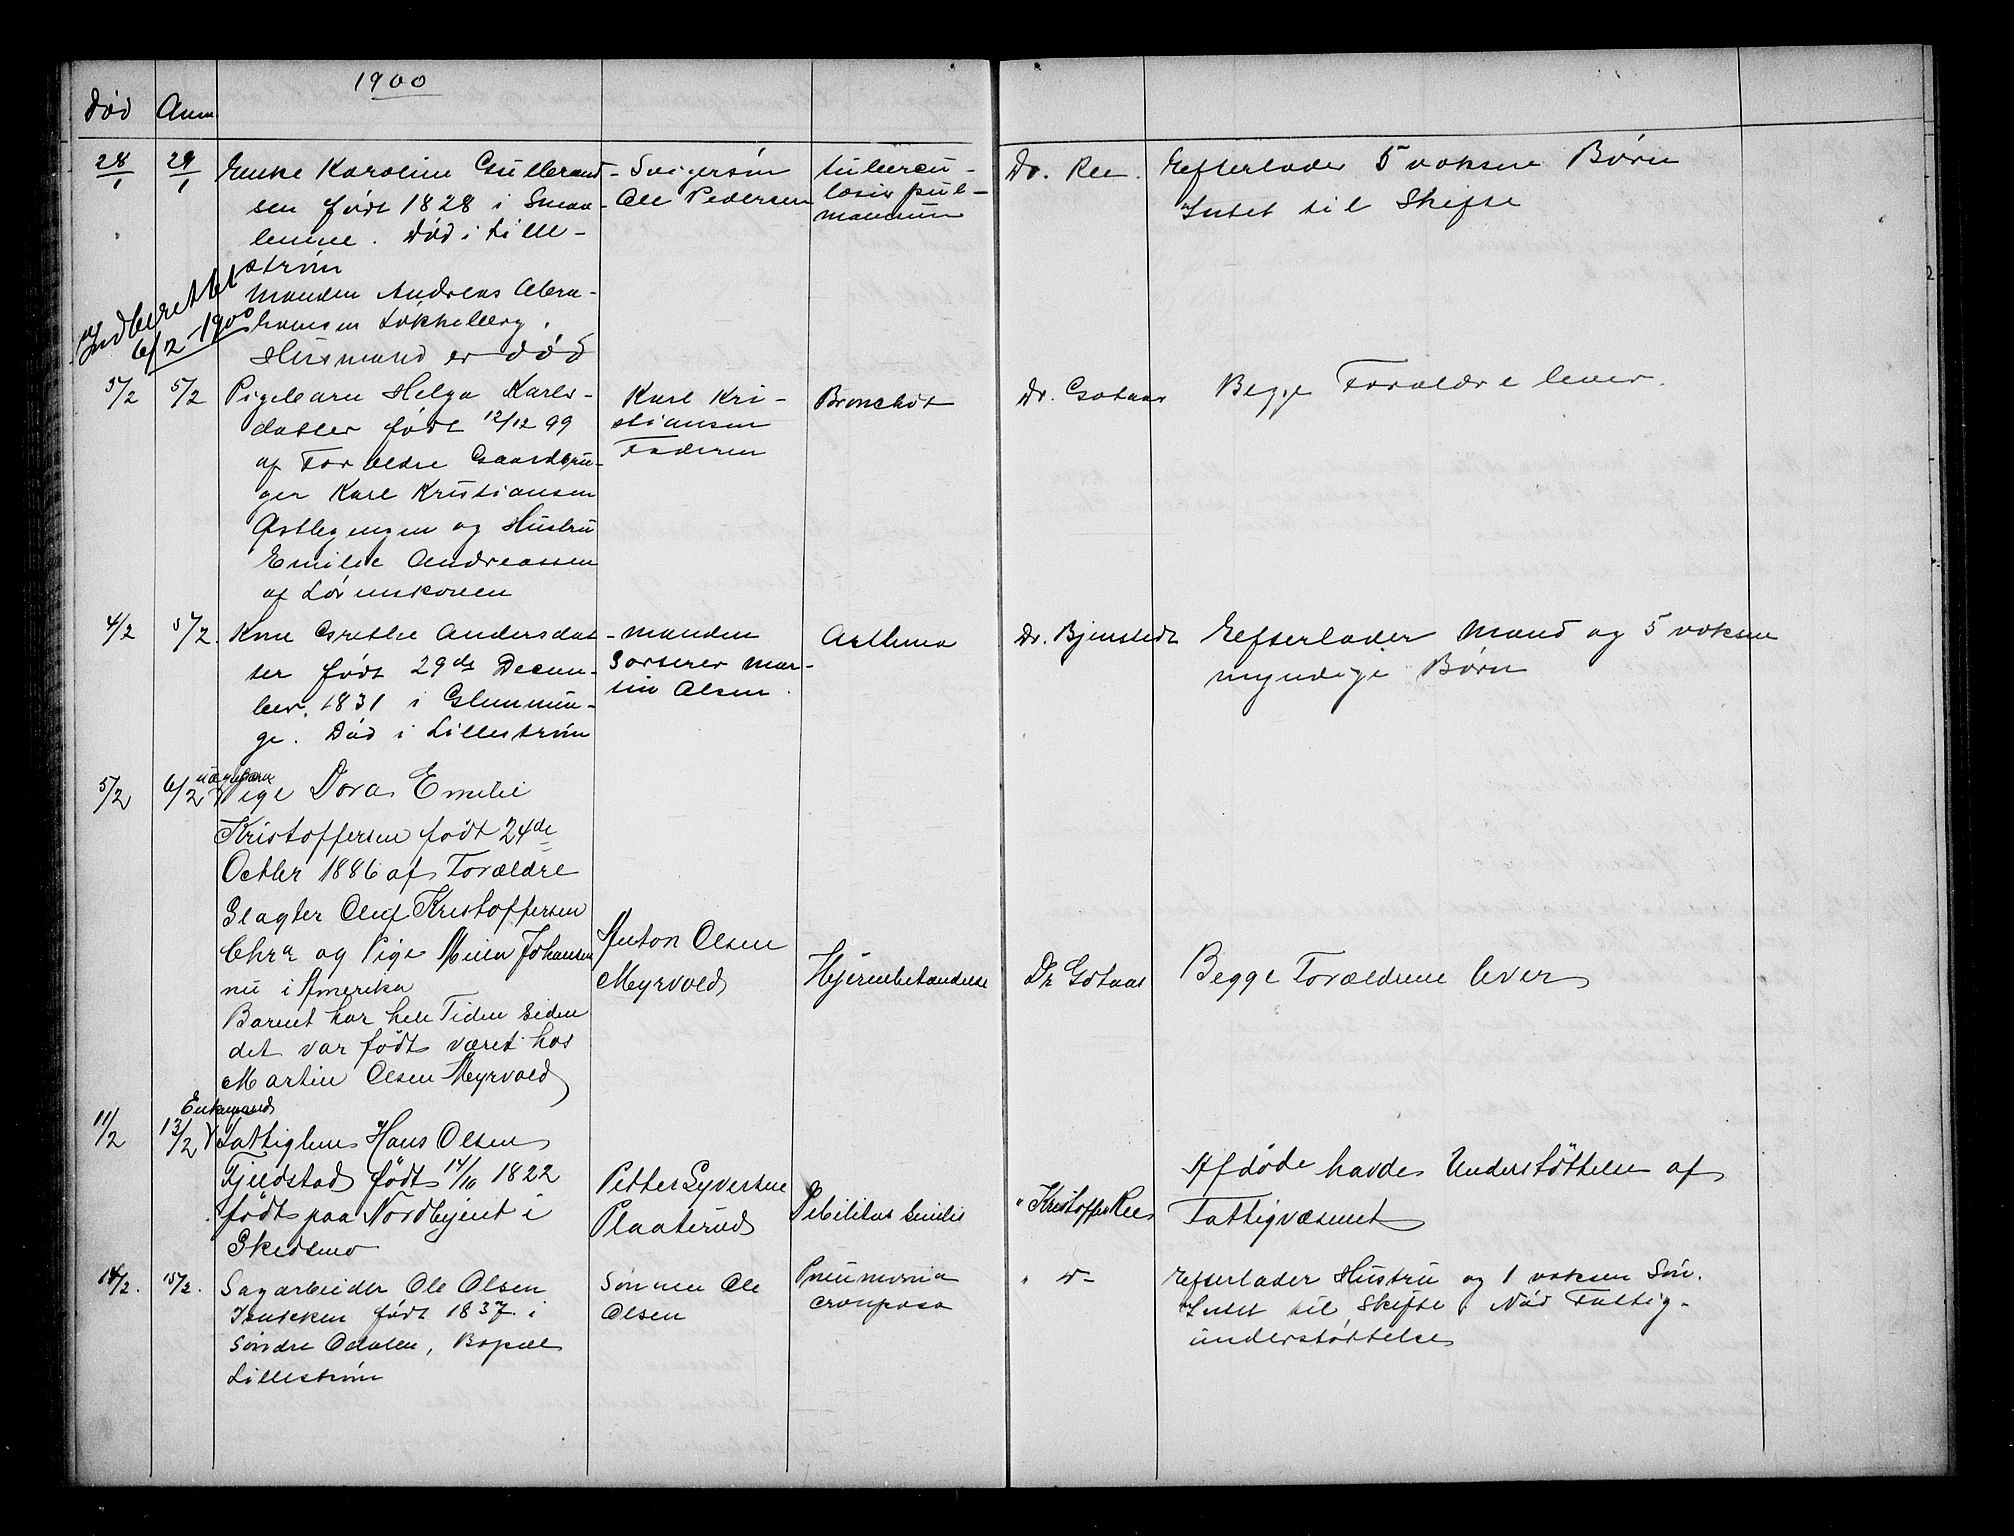 1900
Død Anm
28/1 29/1 Enke Karoline Gulbrand-
sen født 1828 i Smaa-
lenene. Død i Lille-
strøm
Manden Andreas Abra-
hamsen Løkkeberg,
Husmand er død
Svigersøn
Ole Pedersen
tubercu-
losis pul-
monum
Dr. Ree.
Efterlader 5 voksne Børn
Intet til Skifte
Indberettet
6/2 1900
3/2 5/2 Pigebarn Helga Karls-
datter født 12/12 99
af Forældre Gaardbru-
ger Karl Kristiansen
og Hustru
Emilie Andreassen
af Lørenskoven
Karl Kri-
stiansen
Faderen
Bronchit
Dr. Gotaas
Begge Forældre lever.
4/2 5/2. Kone Grethe Andersdat-
ter født 29de Decem-
ber. 1831 i Glemmin-
ge. Død i Lillestrøm
Manden
Sorterer Mar-
tin Olsen.
Asthma
Dr. Bjenstedt
Efterlader Mand og 5 voksne
myndige Børn
5/2 6/2 Pige Dora Emilie
Kristoffersen født 24de
Octbr 1886 af Forældre
Slagter Oluf Kristoffersen
Chra og Pige Johansen
nu i Amerika
Barnet har hele Tiden siden
det var født været hos
Martin Olsen Myrvold
Anton Olsen
Myrvold
Hjernebetændelse
Dr Gotaas
Begge Forældrene lever
Enkemand
11/2 13/2 Fattiglem Hans Olsen
Fjeldstad født 14/10 1822
født paa Nordbyeiet i
Skedsmo
Petter Syversen
Plaaterud
Debilitas senilis
" Kristoffer Ree
Afdøde havde Understøttelse af
Fattigvæsenet
14/2. 15/2. Sagarbeider Ole Olsen
født 1837 i
Søndre Odalen, Bopæl
Lillestrøm
Sønnen Ole
Olsen
Pneumonia
crouposa
" d-
Efterlader Hustru og 1 voksen Søn.
Intet til Skifte. Nød Fattig-
understøttelse